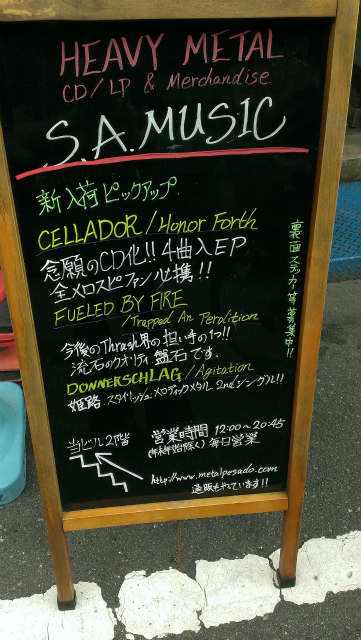 HEAVY METAL
CD/LP & Merchandise
S.A.MUSIC
新入荷ピックアップ
CELLADOR/Honor Forth
念願のCD化!!4曲入EP
全メロスピファン必携!!
FUELED BY FIRE
/Trapped An Perdition
今後のThrash界の担い手の1つ!!
流石のクオリティ、盤石です。
DONNERSCHLAG/Agitation
姫路、スタイリッシュ・メロディックメタル 2ndシングル!!
裏面ステッカー等募集中!!
当ビル2階
営業時間 12:00〜20:45
(年末年始除く)毎日営業
http://www.metalpesado.com
通販もやっています!!